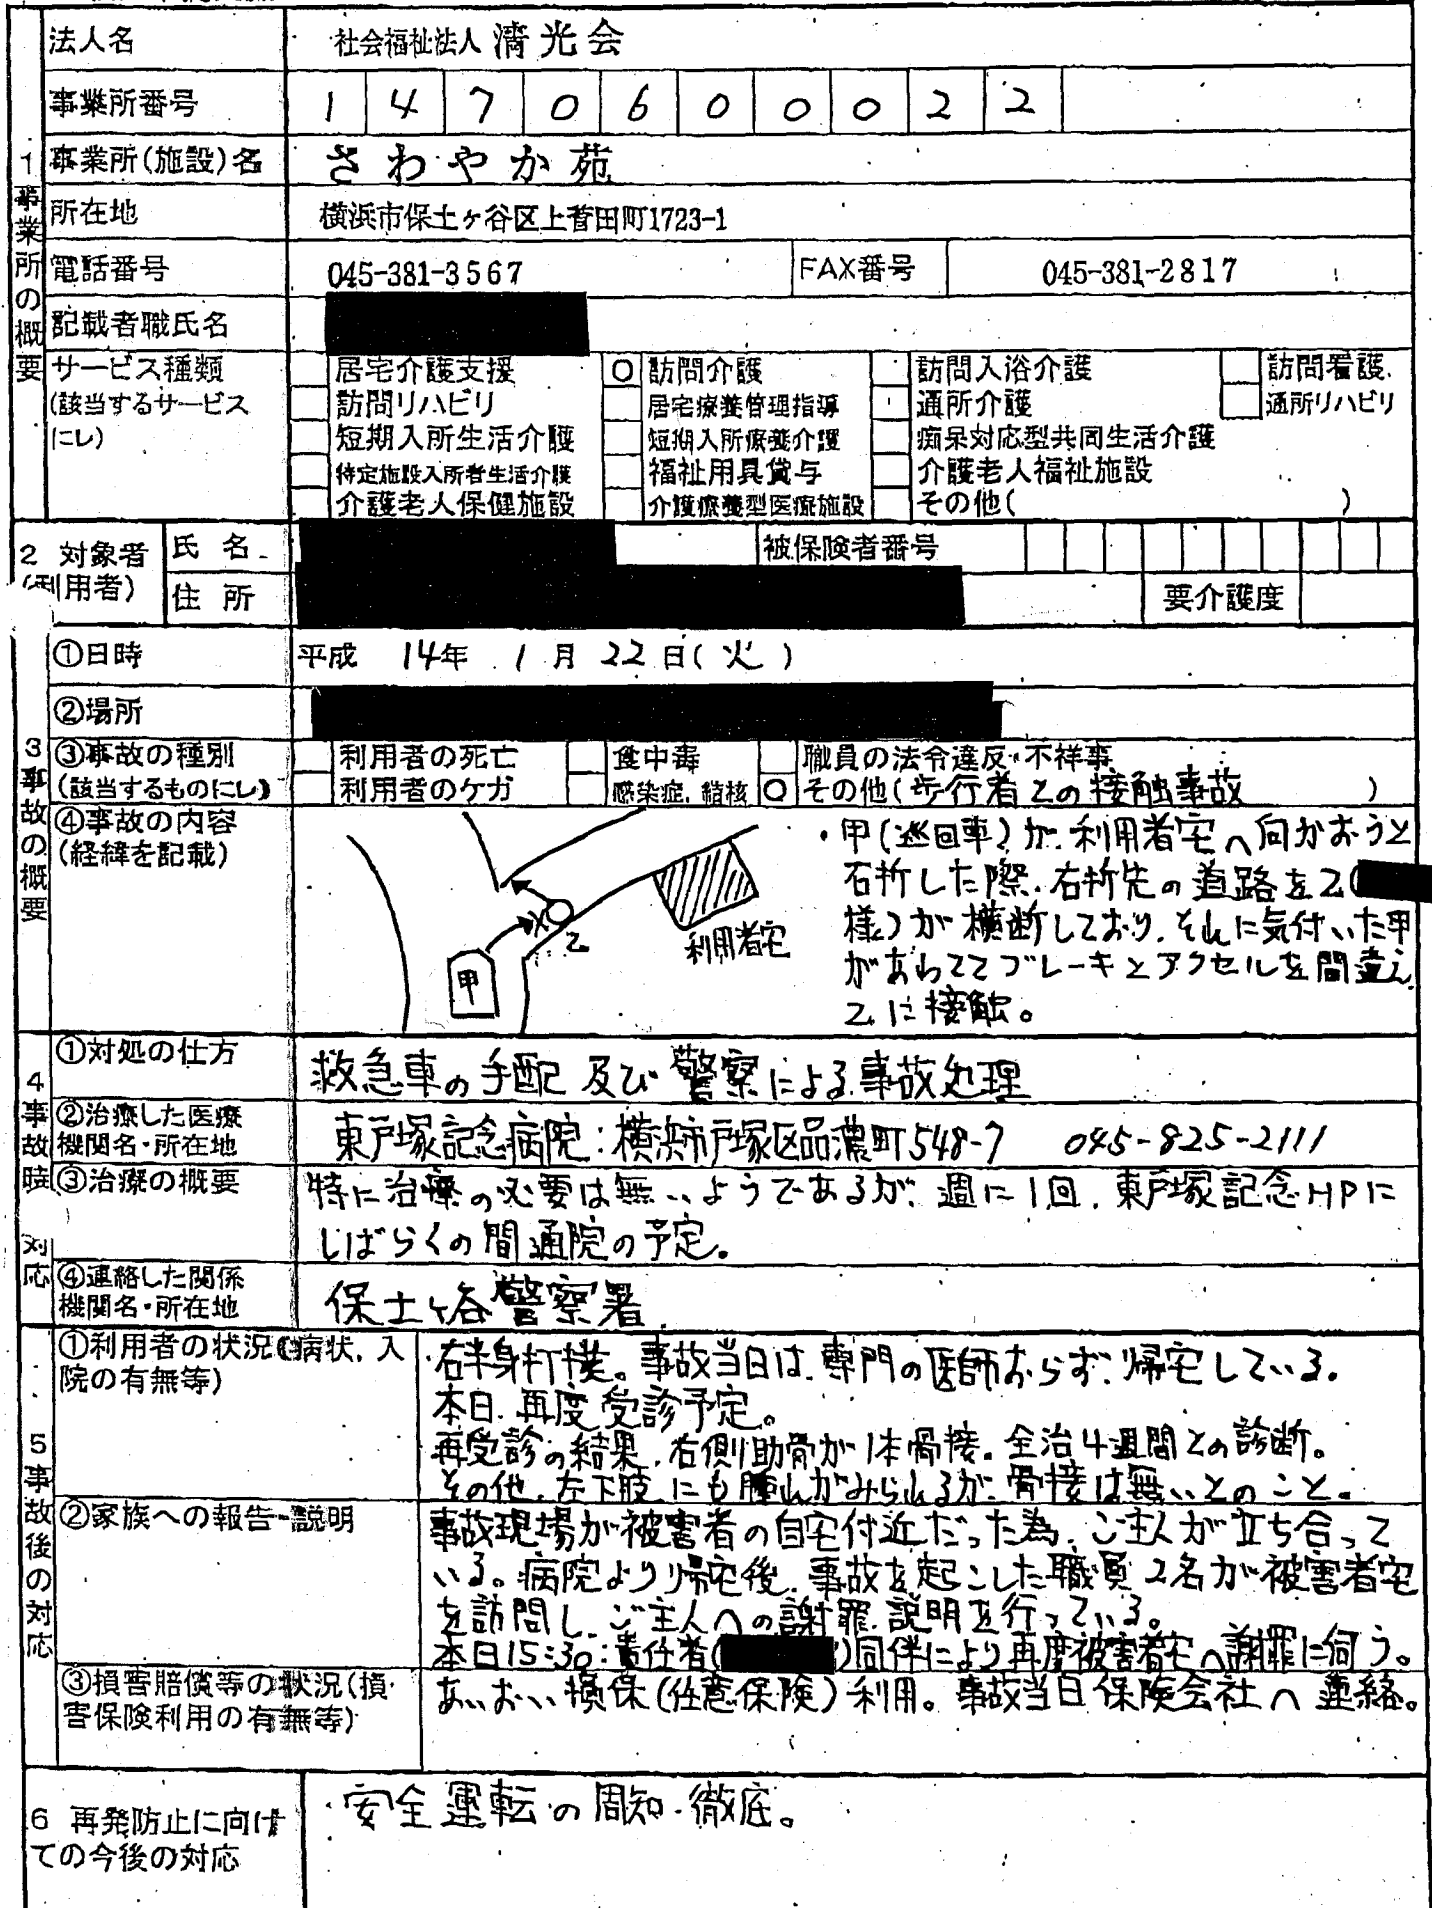 法人名 社会福祉法人 清光会
事業所番号 1 4 7 0 6 0 0 0 2 2
1 事業所の概要
事業所(施設)名 さわやか苑
所在地 横浜市保土ヶ谷区上菅田町1723-1
電話番号 045-381-3567 FAX番号 045-381-2817
記載者職氏名
サービス種類 居宅介護支援 ○ 訪問介護 訪問入浴介護 訪問看護
(該当するサービス 訪問リハビリ 居宅療養管理指導 通所介護 通所リハビリ
にレ) 短期入所生活介護 短期入所療養介護 痴呆対応型共同生活介護
特定施設入所者生活介護 福祉用具貸与 介護老人福祉施設
介護老人保健施設 介護療養型医療施設 その他( )
2 対象者 氏 名 被保険者番号
(利用者) 住 所 要介護度
3 事故の概要
①日時 平成 14年 1月 22日(火)
②場所
③事故の種別 利用者の死亡 食中毒 職員の法令違反・不祥事
(該当するものにレ) 利用者のケガ 感染症、結核 ○ その他(歩行者との接触事故 )
④事故の内容
(経緯を記載)
甲
乙
利用者宅
・甲(巡回車)が、利用者宅へ向かおうと
右折した際、右折先の道路を乙(
様)が横断しており、それに気付いた甲
があわててブレーキとアクセルを間違え
乙に接触。
4 事故時 対応
①対処の仕方 救急車の手配及び警察による事故処理
②治療した医療
機関名・所在地 東戸塚記念病院:横浜市戸塚区品濃町548-7 045-825-2111
③治療の概要 特に治療の必要は無いようであるが、週に1回、東戸塚記念HPに
しばらくの間通院の予定。
④連絡した関係
機関名・所在地 保土ヶ谷警察署
5 事故後の対応
①利用者の状況(病状、入
院の有無等)
・右半身打撲。事故当日は、専門の医師おらず、帰宅している。
本日、再度受診予定。
再受診の結果、右側肋骨が1本骨接。全治4週間との診断。
その他、左下肢にも腫れがみられるが、骨接は無いとのこと。
②家族への報告・説明
事故現場が被害者の自宅付近だった為、ご主人が立ち合って
いる。病院より帰宅後、事故を起こした職員2名が被害者宅
を訪問し、ご主人への謝罪、説明を行っている。
本日15:30:責任者( )同伴により再度被害者宅へ謝罪に伺う。
③損害賠償等の状況(損
害保険利用の有無等)
あいおい損保(任意保険)利用。事故当日保険会社へ連絡。
6 再発防止に向け
ての今後の対応
・安全運転の周知・徹底。